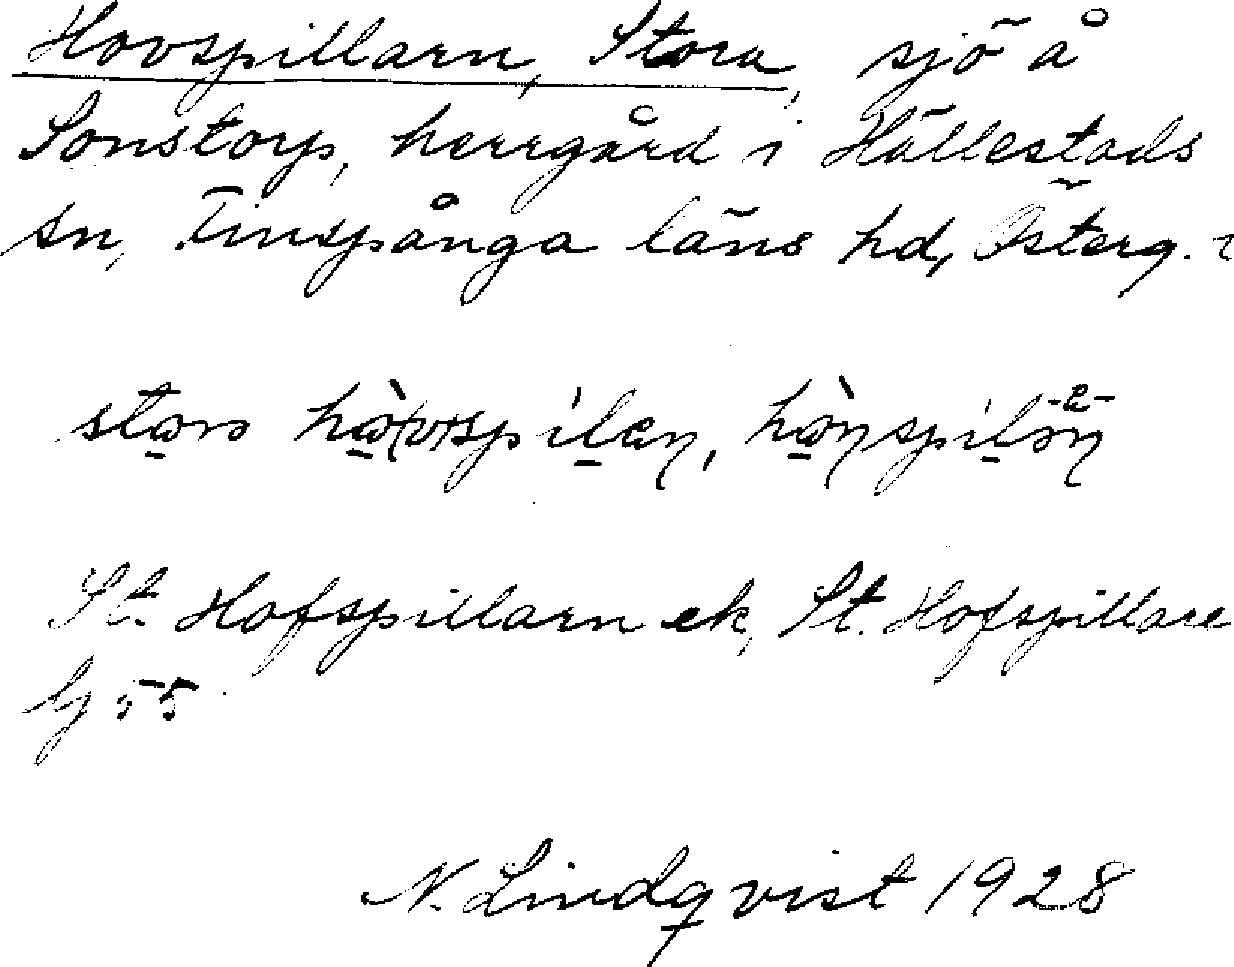 Hovspillarn, Stora, sjö å
Sonstorp, herrgård i Hällestads
sn, Finspånga läns hd, Österg.
St. Hofspillarn ek, St. Hofspillare
55
N. Lindqvist 1928